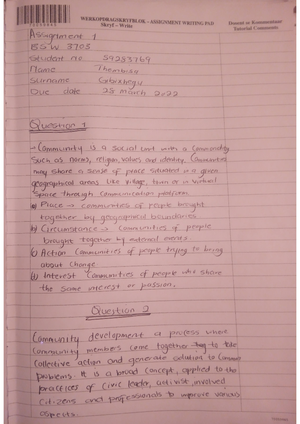 WERKOPDRAGSKRYFBLOK - ASSIGNMENT WRITING PAD
Skryf - Write
Dosent se Kommentaar
Tutorial Comments
Assignment 1
BSW 3703
Student no 59253769
Name
Surname
Due date 28 march 2022
Question 1
- Community is a Social Unit with a Commonality
Such as norms, religion, values and identity. Communities
may share a sense of place situated in a given
geographical areas like village, town or in virtual
Space through Communication platform
a) Place -> Communities of people brought
together by geographical boundaries
b) Circumstance -> Communities of people
brought together by external
c) Action Communities of people trying to bring
about Change
d) Interest Communities of people who share
the same interest or passion.
Question 2
Community development a process where
Community members come together to take
Collective action and generate solution to Common
problems. It is a broad concept, applied to the
practices of Civic leader, activist, involved
Citizens and professionals to improve various
aspects